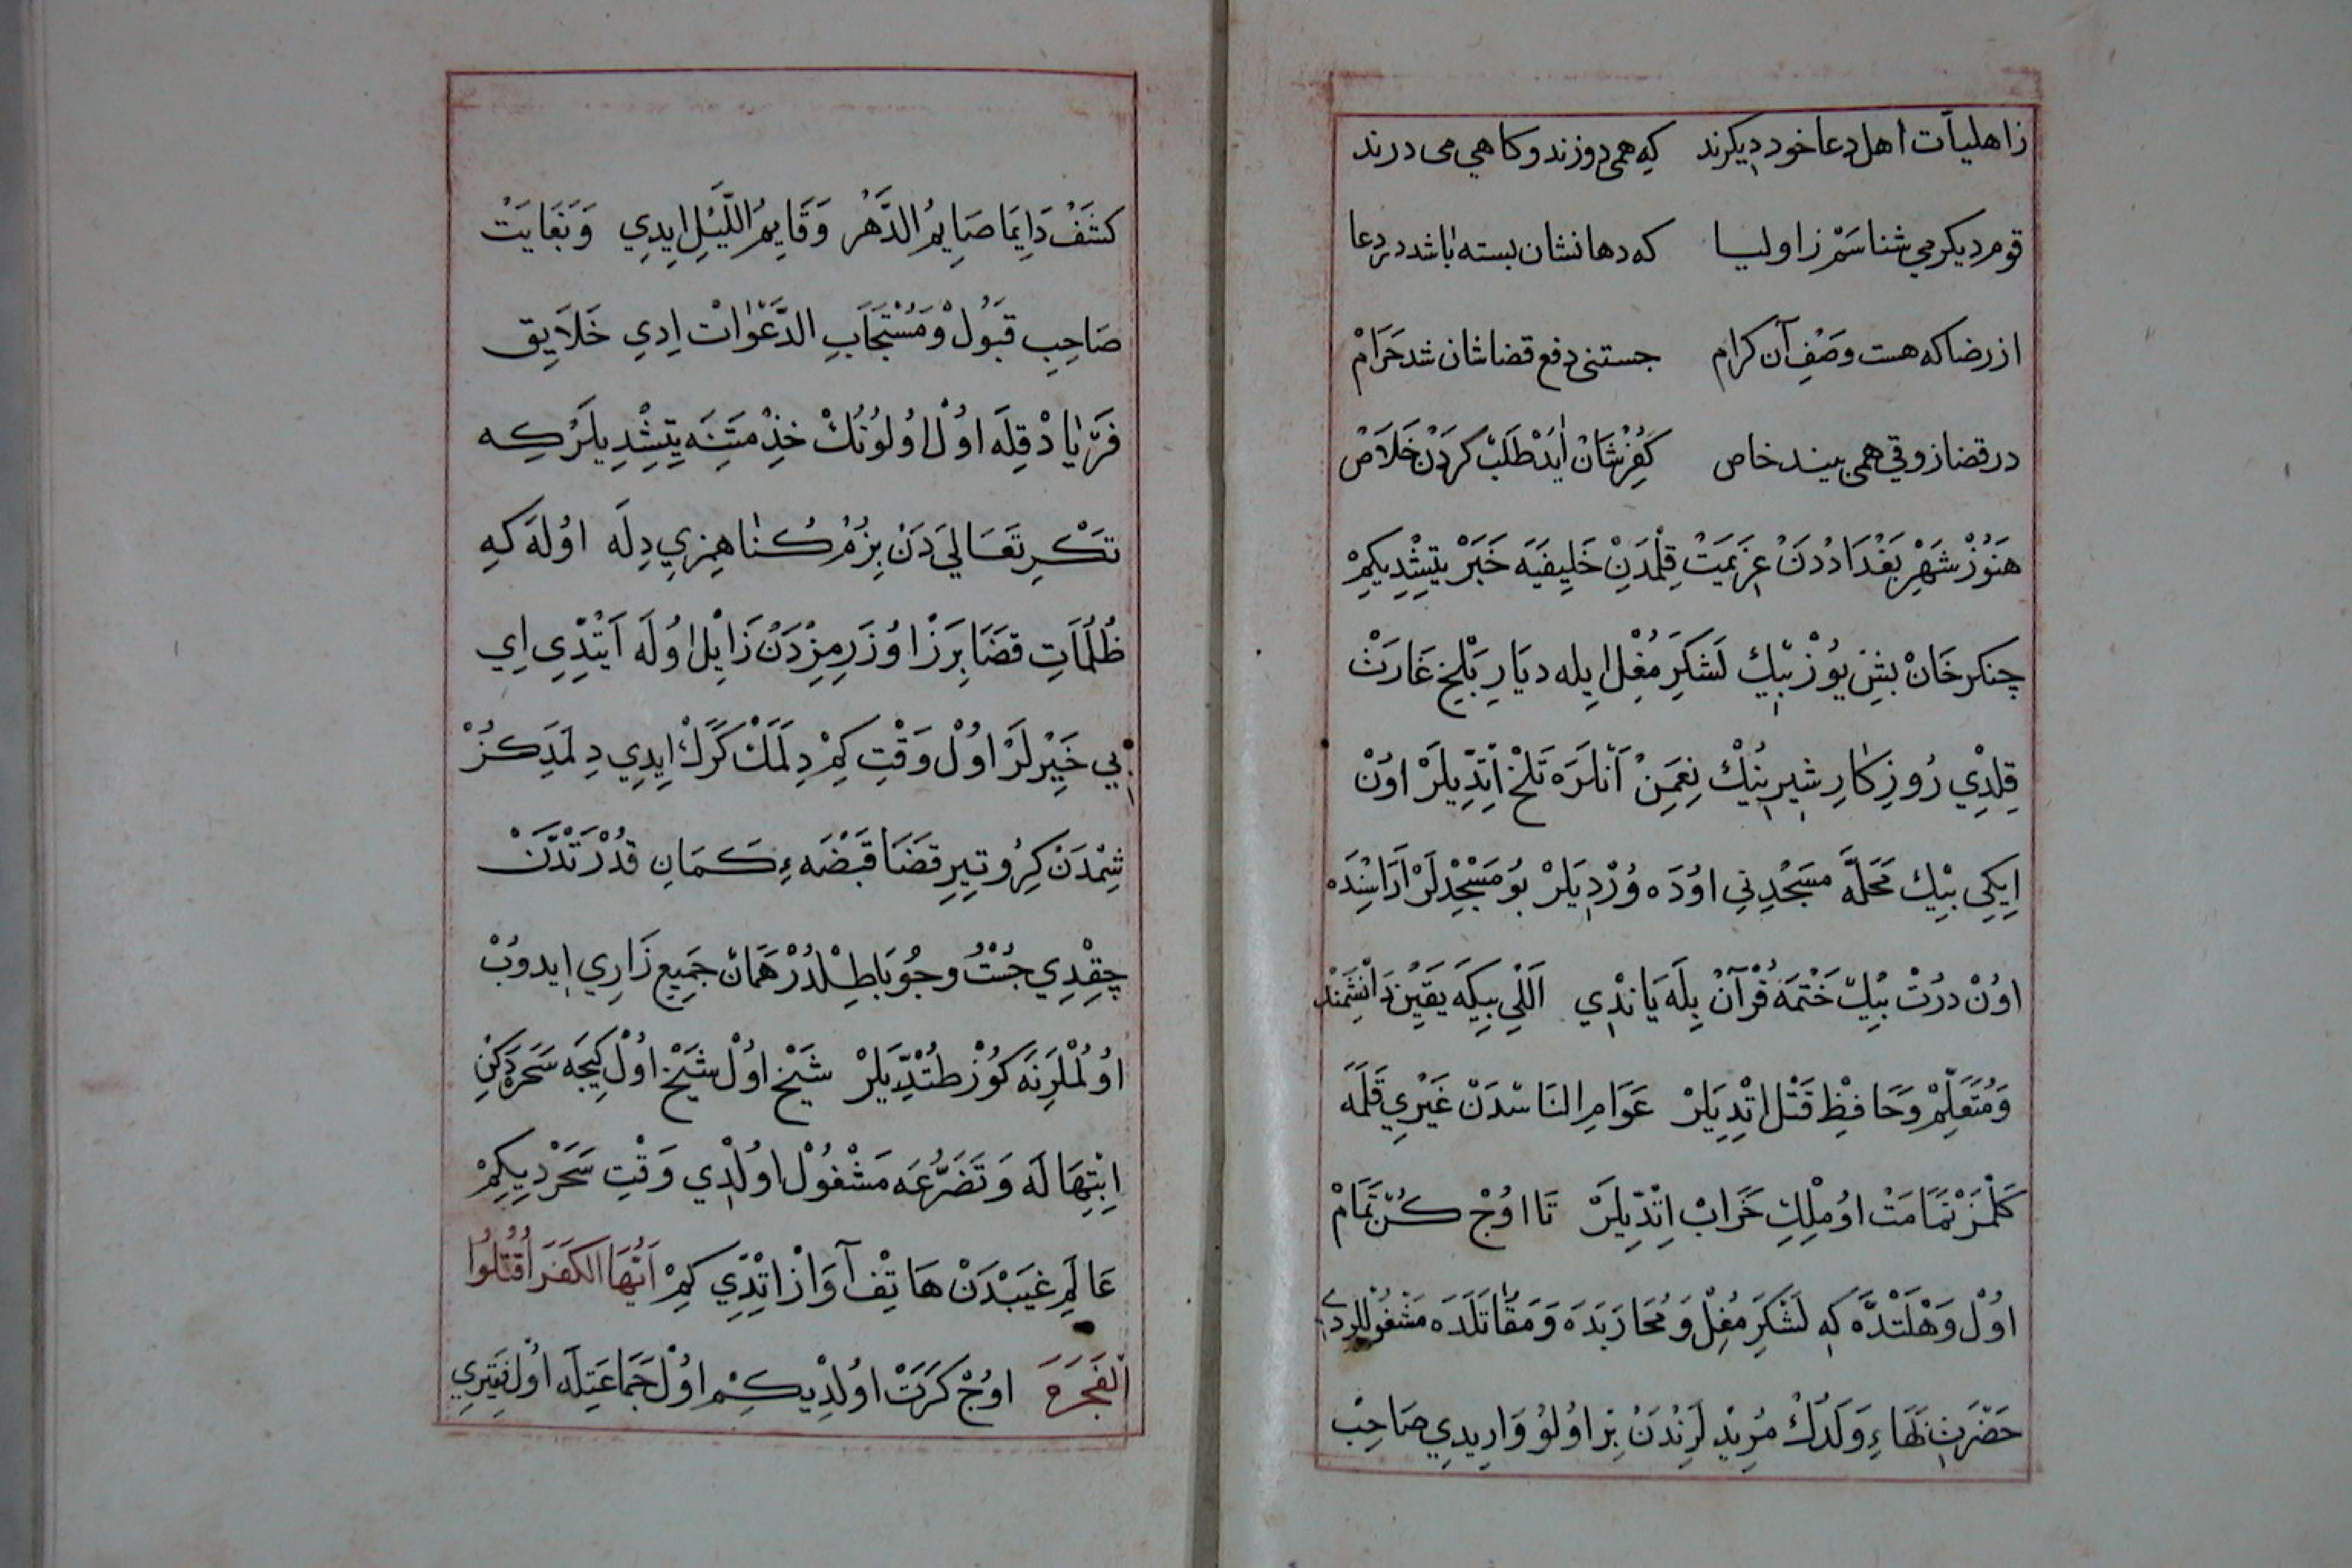 زاهلیآت اهل دعا خود دیکرند که همی دوزند و کاهی می درند
قوم دیکر می شناسَمْ ز اولیا که دهانشان بسته باشد در دعا
از رضا که هست وصْفِ آن کرام جستنی دفع قضاشان شد حَرَامْ
در قضا زوقی همی بیند خاص کُفرْشَانْ اٰیَدْ طَلَبْ کردَنْ خَلَاصْ
هَنُوزْ شَهْرِ بَغْدَاددَنْ عَزِیمَتْ قِلْمَدِنْ خَلِیفَیَه خَبَرْ یتِیشْدِیکِمْ
چنکر خَانْ بشِ یوُزْ بیٖكْ لَشکَرِ مُغِلْ ایِله دیَارِ بَلْخِ غَارَتْ
قِلدْیِ رُوزِکٰارِ شیرینیٖكْ نِعَمِنْ اَنلَرَه تَلْخْ اِتِدّیِلَرْ اوُنْ
اِیکِی بیْكْ مَحَلَّه مَسَجْدِنِی اوُدَه وُرْدیِلَرْ بوُ مَسْجِدْلَرْ اَرَاسِنْدَه
اوُنْ دُرْتْ بیٖكْ خَتْمَهٔ قُرْآنْ بِلَه یَانْدیِ اَللّیِ بیِکَه یَقیِنْ دَانِشْمَنْد
وَمُتَعَلِّمْ وَحَافِظْ قَتْل اتِدیِلَرْ عَوَامِ النَاسْدَنْ غَیْرِی قَلَمَه
کَلْمَزْ تمَامَتْ اوُ مُلْكِ خَرَابْ اِتِدّیِلَرْ تَا اوُجْ کُنْ تَمَامْ
اوُلْ وَهْلَتْدَه کِه لَشْکَرَ مُغِلْ وَمُحَارَبَدَه وَمَقَاتَلَدَه مَشْغوُللردی
حَضْرَتِ بَهَاءِ وَلَدُكْ مُرِیدْلَرِنْدَنْ بِرْ اوُلوُ وَارِیدِی صَاحِبْ
کشَفْ دَایِمَا صَایِمُ الدَّهْر وَقَایِمُ اللَّیَلِ اِیدِی وَبَغَایَتْ
صَاحِبِ قَبُولْ وَمُسْتَجَابِ الدَّعْوَاتْ اِدِی خَلَایِق
فَرْیَادْ قِلَه اوُلْ اوُلوُنُكْ خِذْمَتِنَه یتِشْدِیلَرْکِه
تکْرِ تَعَالیَ دَنْ بِزُمْ کُنَاهِمِزِی دِلَه اوُلَه کِه
ظُلُمَاتِ قضَا بَرَزْ اوُزَرِمِزْدَنْ زَایِلْ اوُلَه اَیِتْدّیِ اِی
بی خَبَرْلَرْ اوُلْ وَقْتِ کِمْ دِلَمَكْ کَرَكْ اِیدِی دِلمَدِکُزْ
شِمْدَنْ کِرُو تِیرِ قضَا قَبْضَهءِ کَمَانِ قُدْرَتْدَنْ
چِقِدْیِ جُسْتُ وجُو بَاطِلْدُرْ هَمَانْ جَمِیعِ زَارِی ایِدوُبْ
اوُلُمْلَرِنَه کوُزْ طُتْدیِلَرْ شَیْخْ اوُلْ شَیْخْ اوُلْ کِیجَه سَحَرَه دَکِنْ
اِبْتِهَالَه وَتَضَرُّعَه مَشْغوُلْ اوُلْدیِ وَقْتِ سَحَرْدِیکِمْ
عَالَمِ غَیْبْدَنْ هَاتِفْ آوَازْ اتِدّیِ کِمْ اَیُّهَا الکَفَرَ اُقْتُلوُا
اَلْفَجَرَه اوُجْ کَرَتْ اوُلْدِیکِمْ اوُلْ جَمَاعَتِلَه اوُلْ